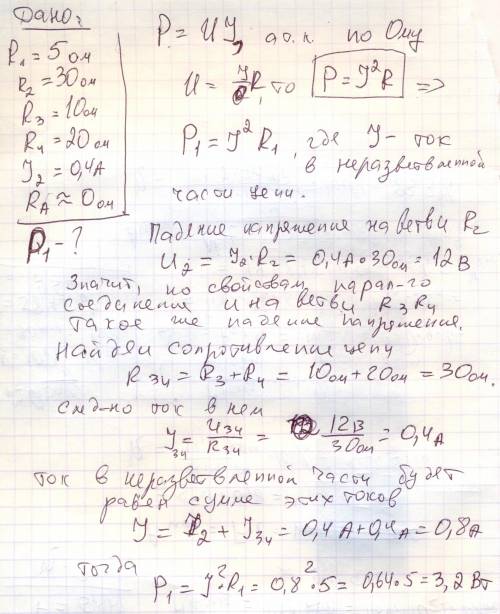 Дано:
R₁ = 5 Ом
R₂ = 30 Ом
R₃ = 10 Ом
R₄ = 20 Ом
J₂ = 0,4 А
R_A ≈ 0 Ом
P₁ - ?
P = UJ, а т.к. по Ому
U = JR, то P = J²R =>
P₁ = J²R₁, где J - ток
в неразветвленной
части цепи.
Падение напряжения на ветви R₂
U₂ = J₂·R₂ = 0,4А·30 Ом = 12 В
Значит, по свойствам парал-го
соединения и на ветви R₃R₄
такое же падение напряжения.
Найдём сопротивление цепи
R₃₄ = R₃ + R₄ = 10 Ом + 20 Ом = 30 Ом.
след-но ток в нем
J₃₄ = U₃₄/R₃₄ = 12В/30 Ом = 0,4 А
ток в неразветвленной части будет
равен сумме этих токов
J = J₂ + J₃₄ = 0,4 А + 0,4 А = 0,8 А
тогда
P₁ = J²·R₁ = 0,8²·5 = 0,64·5 = 3,2 Вт